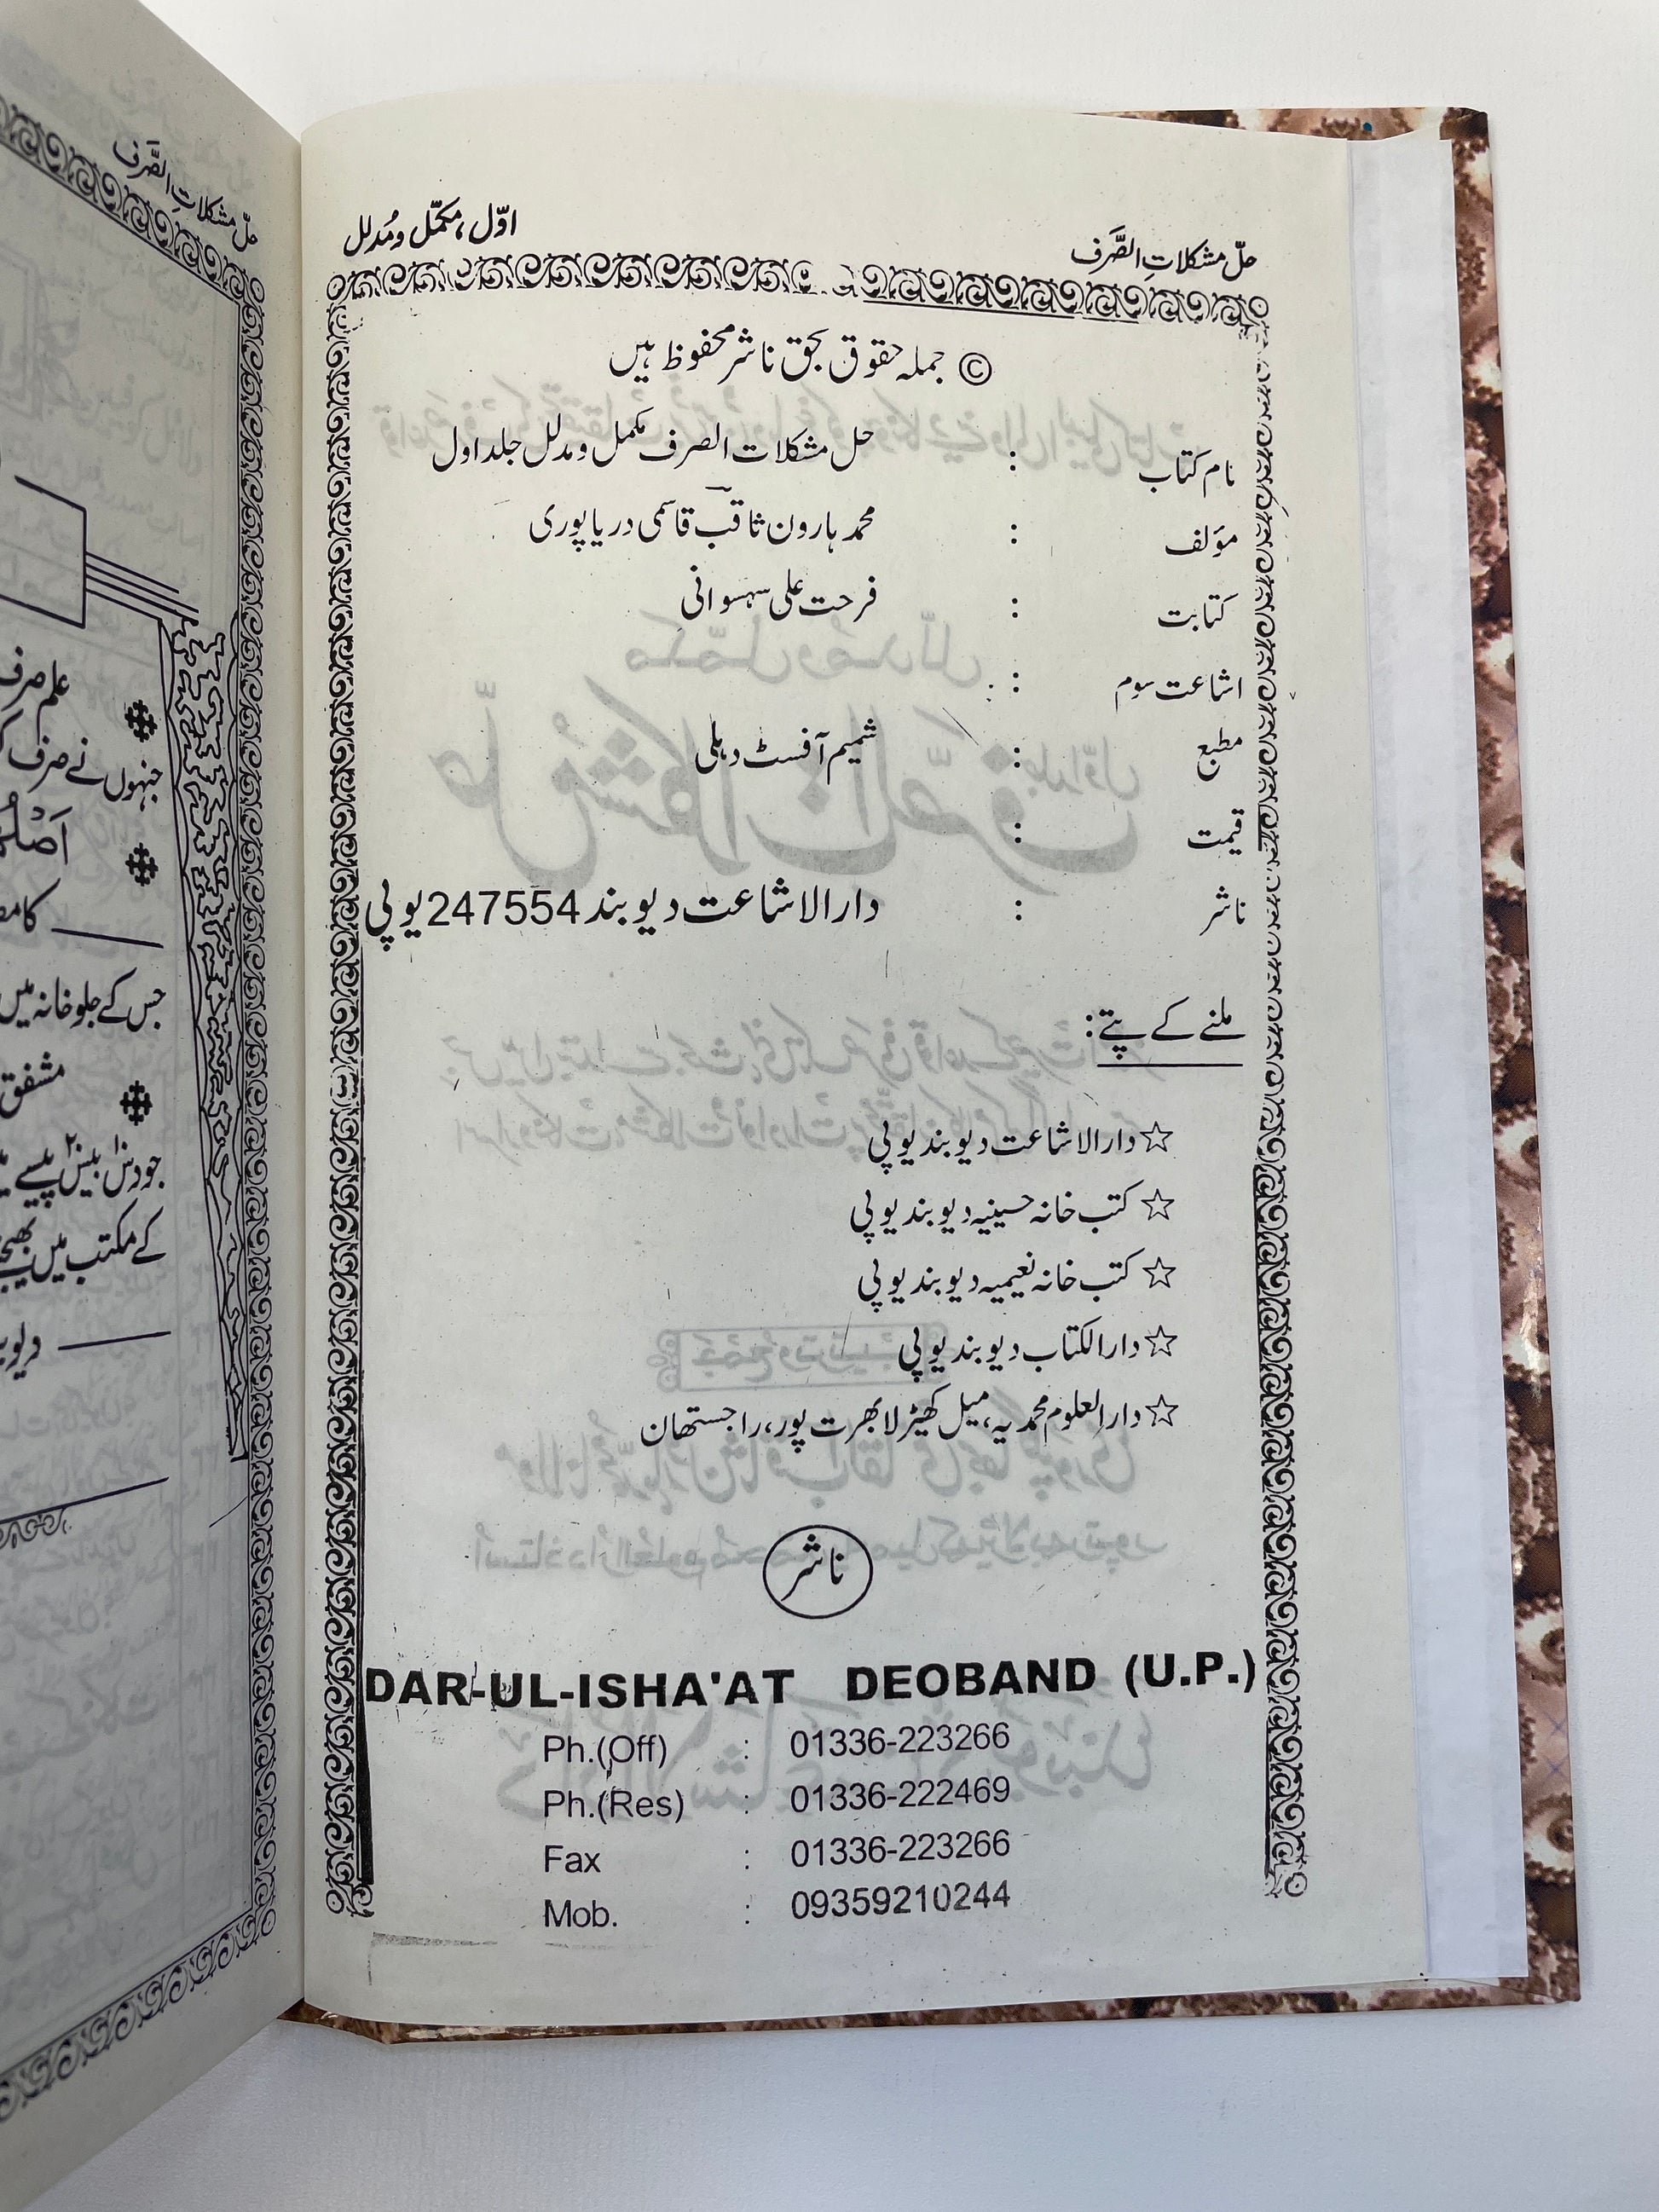 حلّ مشکلاتِ الصَّرف
اوّل، مکمّل و مُدلل
© جملہ حقوق بحق ناشر محفوظ ہیں
نام کتاب : حل مشکلات الصرف مکمل و مدلل جلد اول
مؤلف : محمد ہارون ثاقب قاسمی دریاپوری
کتابت : فرحت علی سہسوانی
اشاعت سوم :
مطبع : شمیم آفسٹ دہلی
قیمت :
ناشر : دارالاشاعت دیوبند 247554 یوپی
ملنے کے پتے :
☆ دارالاشاعت دیوبند یوپی
☆ کتب خانہ حسینیہ دیوبند یوپی
☆ کتب خانہ نعیمیہ دیوبند یوپی
☆ دارالکتاب دیوبند یوپی
☆ دارالعلوم محمدیہ، میل کھیڑلا بھرت پور، راجستھان
ناشر
DAR-UL-ISHA'AT DEOBAND (U.P.)
Ph.(Off) : 01336-223266
Ph.(Res) : 01336-222469
Fax : 01336-223266
Mob. : 09359210244
حلّ مشکلاتِ الصَّرف
علم صرف
جنہوں نے صرف
جس کے جلو خانہ میں
مشفق
کے مکتب میں